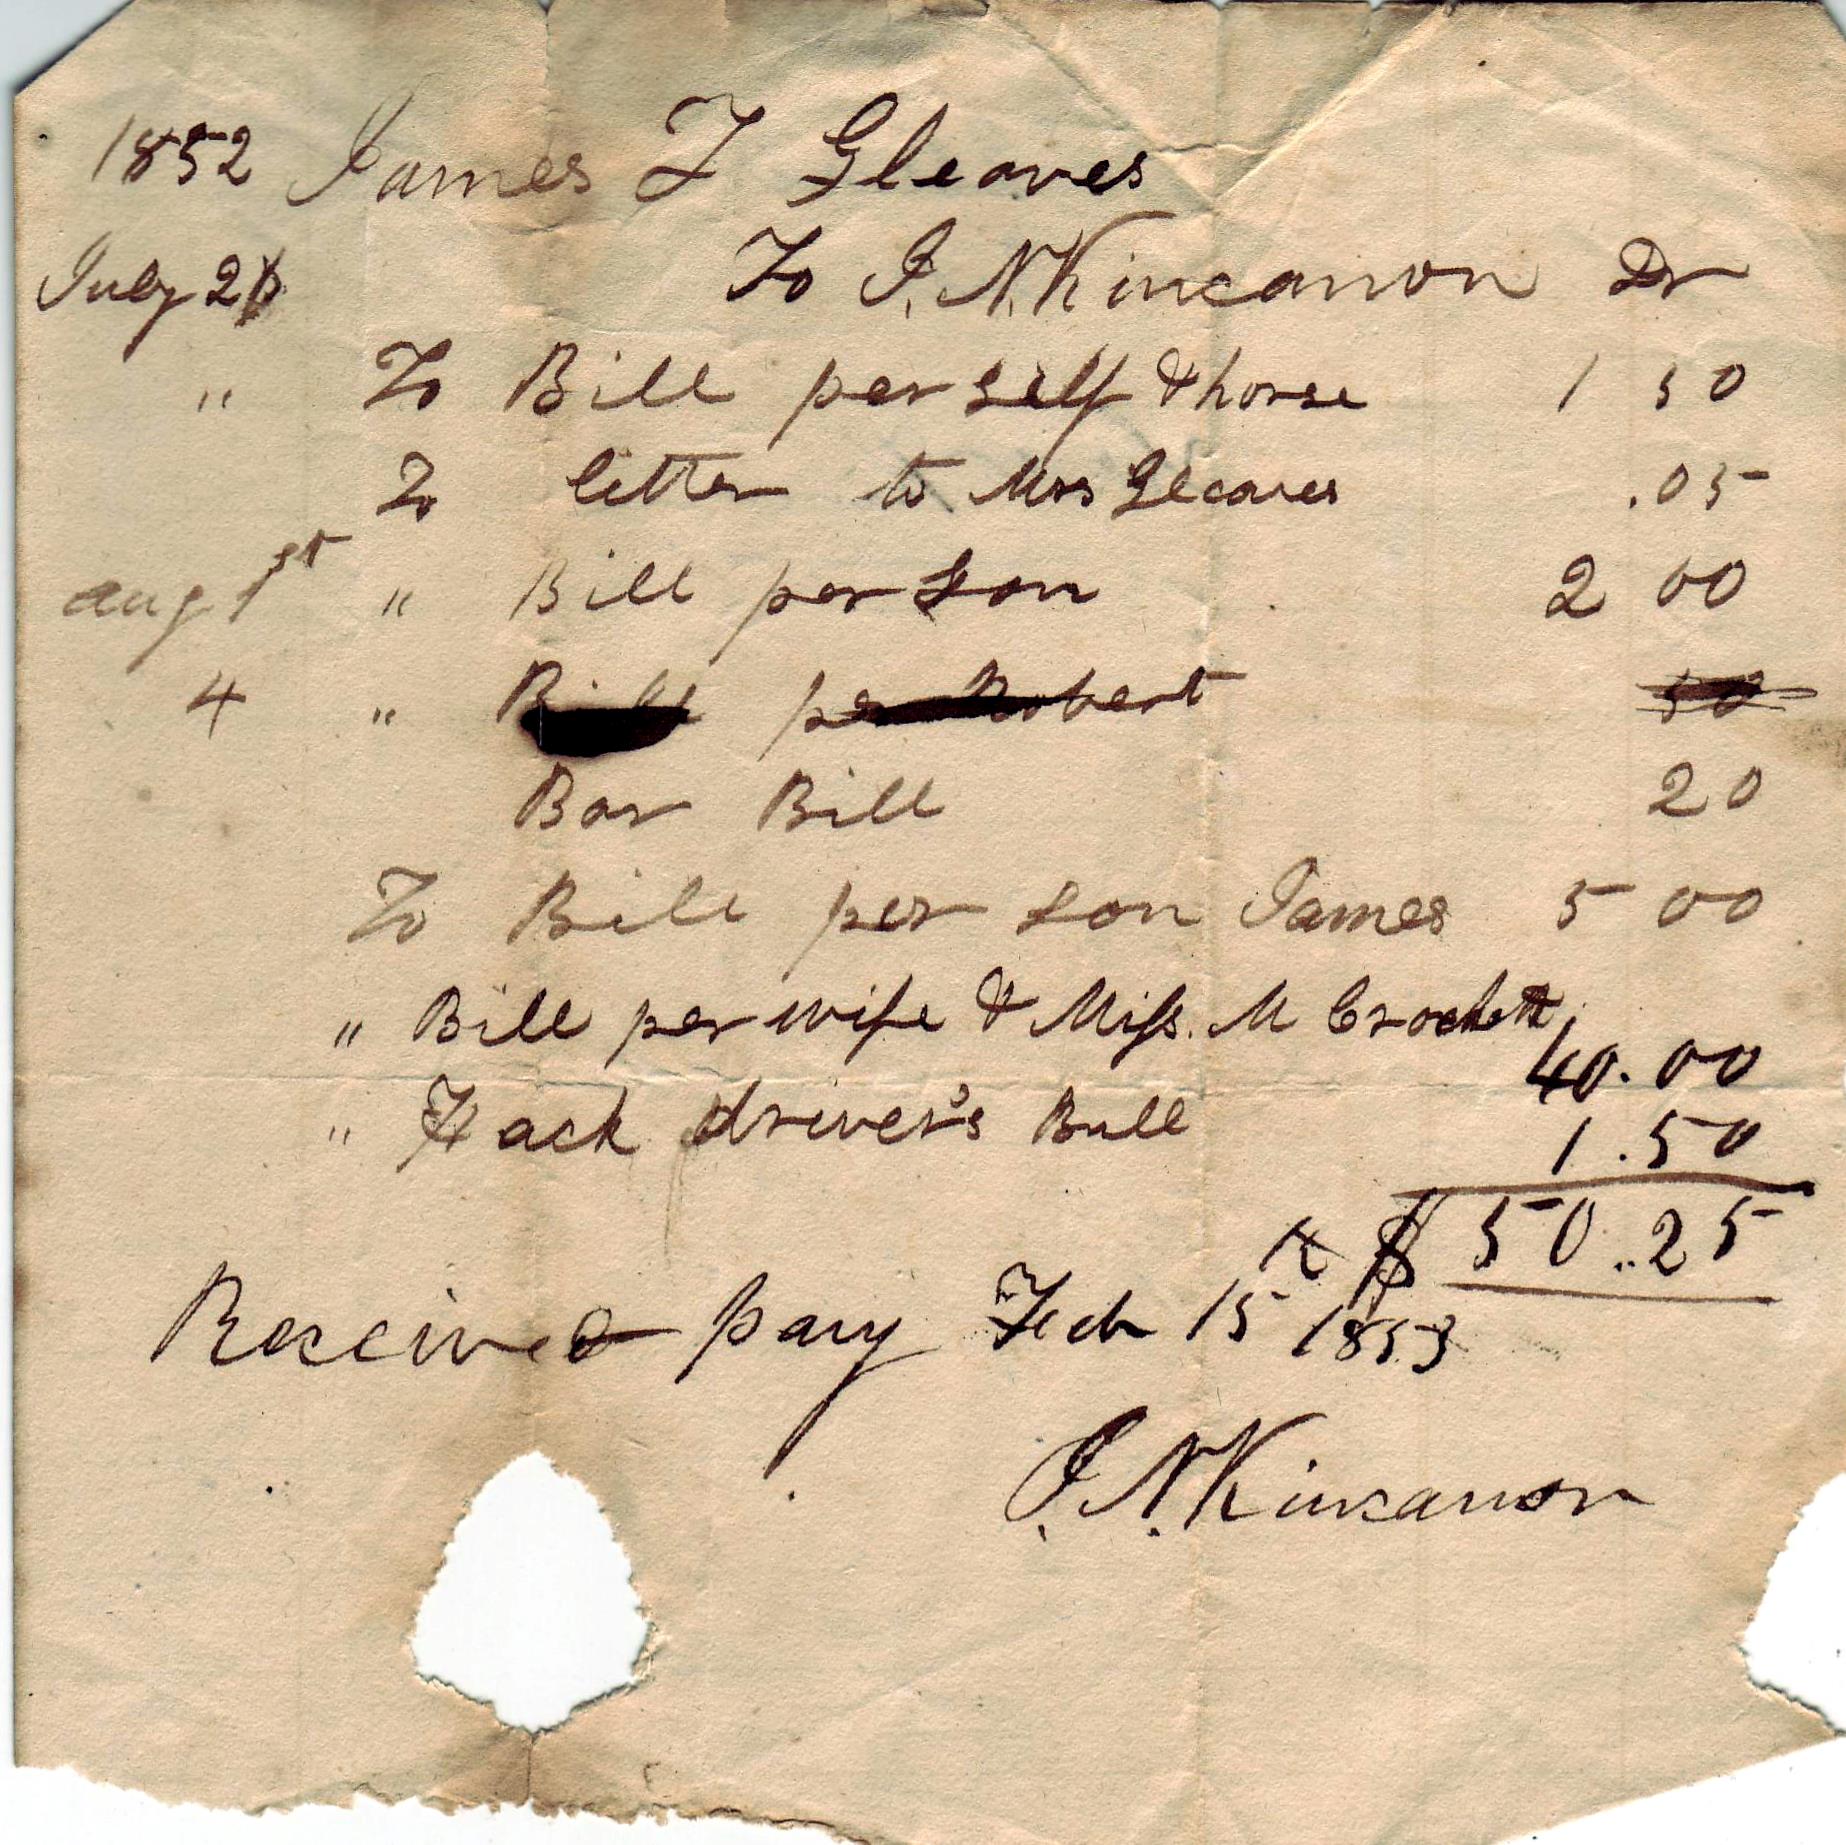 1852 James T Gleaves
July 26 To I. N. Kincannon Dr
" To Bill per self & horse 1 50
To letter to Mrs Gleaves .05
Aug 1st " Bill per son 2 00
4 " Bill per Robert 50
Bar Bill 20
To Bill per son James 5 00
" Bill per wife & Miss. M Crockett
40.00
" Hack driver's Bill 1.50
$ 50..25
Received pay Feb 15 1853
I. N. Kincannon